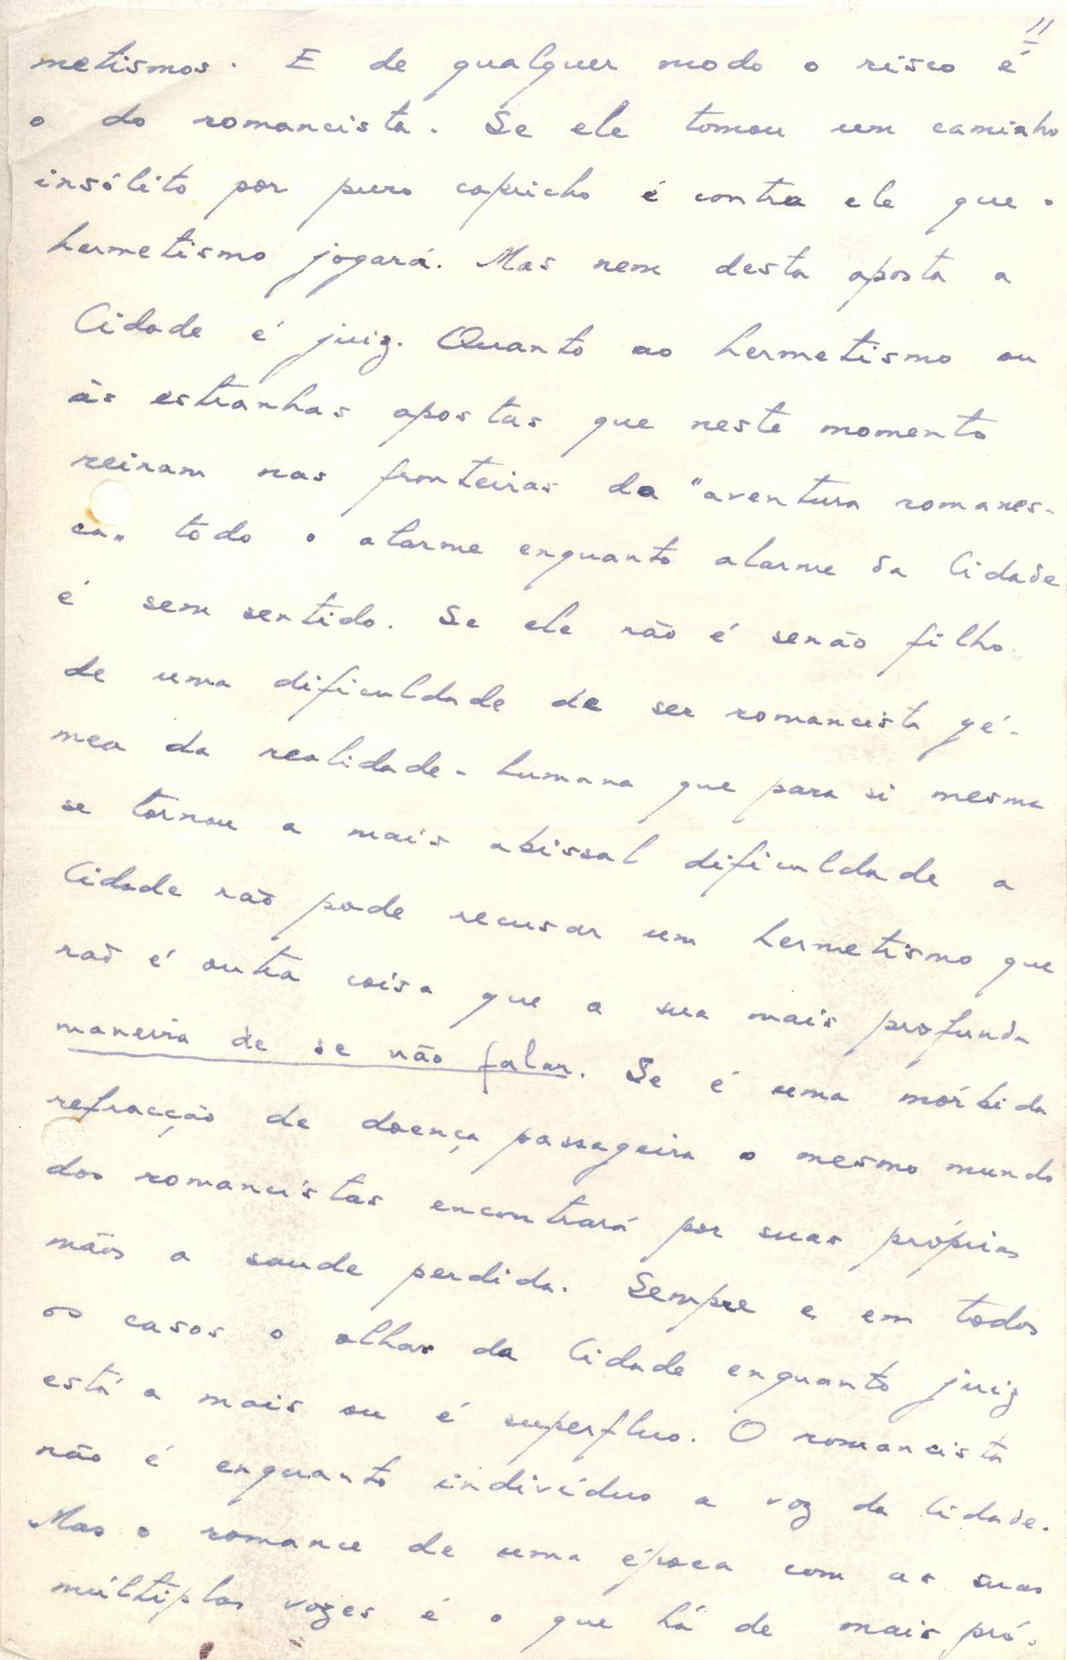 11
metismos. E de qualquer modo o risco é
o do romancista. Se ele tomou um caminho
insólito por puro capricho é contra ele que o
hermetismo jogará. Mas nem desta aposta a
Cidade é juiz. Quanto ao hermetismo ou
às estranhas apostas que neste momento
reinam nas fronteiras da "aventura romanes-
ca" todo o alarme enquanto alarme da Cidade
é sem sentido. Se ele não é senão filho
de uma dificuldade de ser romancista gé-
mea da realidade-humana que para si mesma
se tornou a mais abissal dificuldade a
Cidade não pode recusar um hermetismo que
não é outra coisa que a sua mais profunda
maneira de se não falar. Se é uma mórbida
refracção de doença passageira o mesmo mundo
dos romancistas encontrará por suas próprias
mãos a saude perdida. Sempre e em todos
os casos o olhar da Cidade enquanto juiz
está a mais ou é superfluo. O romancista
não é enquanto indivíduo a voz da Cidade.
Mas o romance de uma época com as suas
múltiplas vozes é o que há de mais pró-